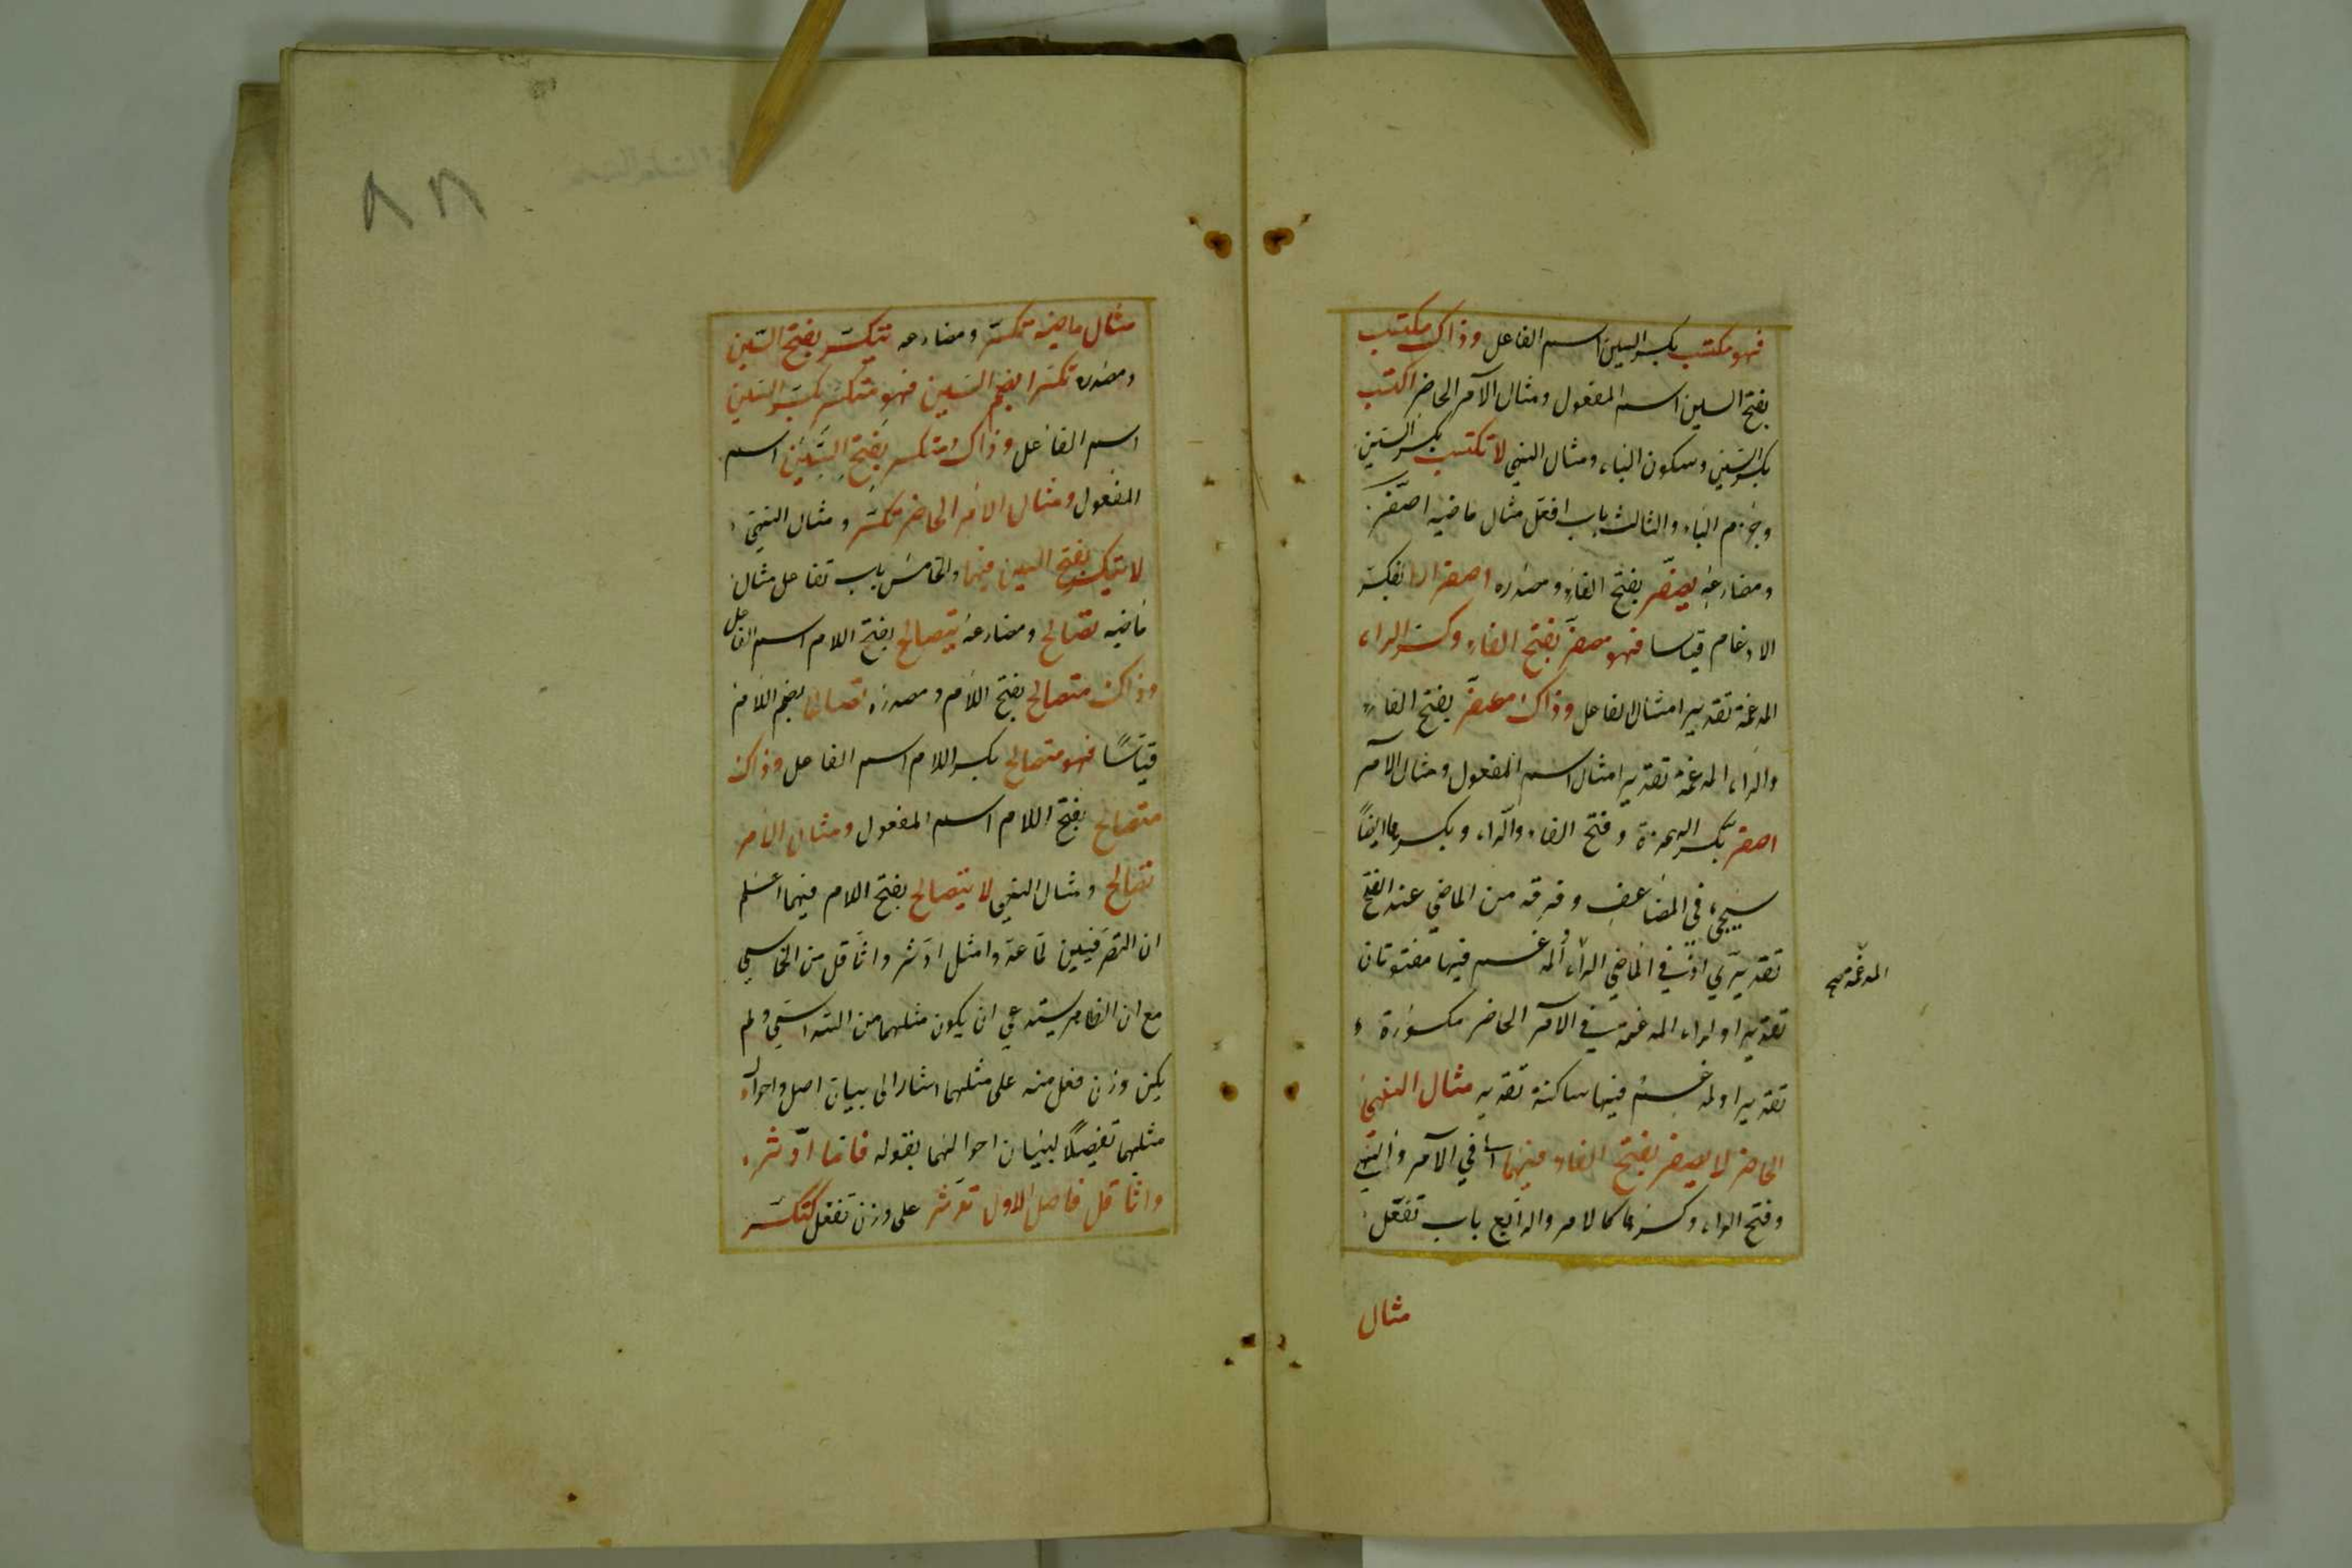 فهو مكتسب بكسر السين اسم الفاعل وذاك مكتسب
بفتح السين اسم المفعول ومثال الامر الحاضر اكتسب
بكسر السين وسكون الباء ومثال النهي لا تكتسب بكسر السين
وجزم الباء والثالث باب افعل مثال ماضيه اصفر
ومضارعه يصفر بفتح الفاء ومصدره اصفرارا بفك
الادغام قياسا فهو مصفر بفتح الفاء وكسر الراء
المدغمة تقديرا مثال الفاعل وذاك مصفر بفتح الفاء
والراء المدغمة تقديرا مثال اسم المفعول ومثال الامر
اصفر بكسر الهمزة وفتح الفاء والراء وبكسرها ايضا
سيجيء في المضاعف وفرقه من الماضي عند الفتح
تقديري اذ في الماضي الراء المدغم فيها مفتوحتان
المدغمة صح
تقديرا والراء المدغمة في الامر الحاضر مكسورة
تقديرا والمدغم فيها ساكنة تقديرا مثال النهي
الحاضر لا يصفر بفتح الفاء فيهما اي في الامر والنهي
وفتح الراء وكسرها كالامر والرابع باب تفعل
مثال
٨٨
مثال ماضيه تكسر ومضارعه يتكسر بفتح السين
ومصدره تكسرا بضم السين فهو متكسر بكسر السين
اسم الفاعل وذاك متكسر بفتح السين اسم
المفعول ومثال الامر الحاضر تكسر ومثال النهي
لا يتكسر بفتح السين فيهما والخامس باب تفاعل مثال
ماضيه تصالح ومضارعه يتصالح بفتح اللام اسم الفاعل
وذاك متصالح بفتح اللام ومصدره تصالحا بضم اللام
قياسا فهو متصالح بكسر اللام اسم الفاعل وذاك
متصالح بفتح اللام اسم المفعول ومثال الامر
تصالح ومثال النهي لا يتصالح بفتح اللام فيهما اعلم
ان التصرفيين لما عدوا مثل ادثر واثاقل من الخماسي
مع ان الظاهر يستدعي ان يكون مثلهما من السداسي ولم
يكن وزن فعل منه على مثلهما اشار الى بيان اصل واحوال
مثلهما تفصيلا لبيان احوالهما بقوله فاما ادثر
واثاقل فاصل الاول تدثر على وزن تفعل كتكسر